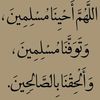 اللَّهُمَّ أَحْيِنَا مُسْلِمِينَ،
وَتَوَفَّنَا مُسْلِمِينَ،
وَأَلْحِقْنَا بِالصَّالِحِينَ.